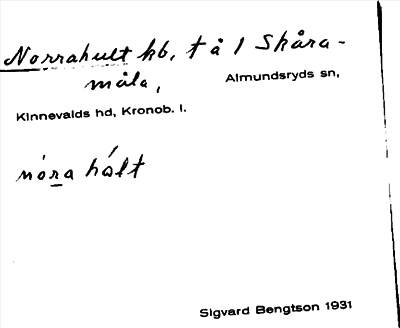 Norrahult hb, t å 1 Skåra-
måla, Almundsryds sn,
Kinnevalds hd, Kronob. l.
nòra hált
Sigvard Bengtson 1931